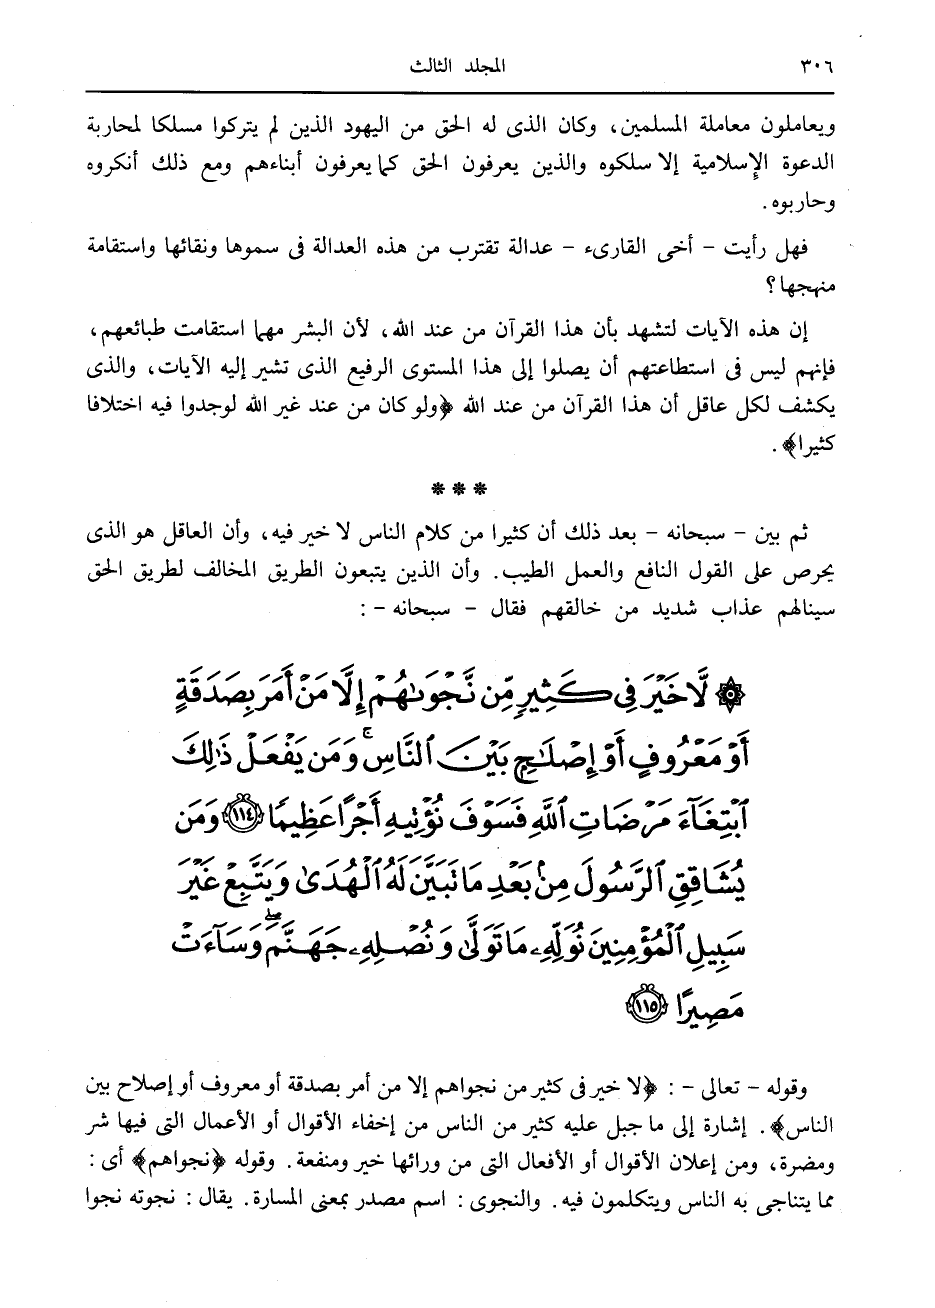 ٣٠٦ المجلد الثالث
ويعاملون معاملة المسلمين، وكان الذى له الحق من اليهود الذين لم يتركوا مسلكا لمحاربة
الدعوة الإسلامية إلا سلكوه والذين يعرفون الحق كما يعرفون أبناءهم ومع ذلك أنكروه
وحاربوه.
فهل رأيت - أخى القارىء - عدالة تقترب من هذه العدالة فى سموها ونقائها واستقامة
منهجها؟
إن هذه الآيات لتشهد بأن هذا القرآن من عند الله، لأن البشر مهما استقامت طبائعهم،
فإنهم ليس فى استطاعتهم أن يصلوا إلى هذا المستوى الرفيع الذى تشير إليه الآيات، والذى
يكشف لكل عاقل أن هذا القرآن من عند الله ﴿ولو كان من عند غير الله لوجدوا فيه اختلافا
كثيرا﴾.
* * *
ثم بين - سبحانه - بعد ذلك أن كثيرا من كلام الناس لا خير فيه، وأن العاقل هو الذى
يحرص على القول النافع والعمل الطيب. وأن الذين يتبعون الطريق المخالف لطريق الحق
سينالهم عذاب شديد من خالقهم فقال - سبحانه - :
۞ لَّا خَيْرَ فِى كَثِيرٍ مِّن نَّجْوَىٰهُمْ إِلَّا مَنْ أَمَرَ بِصَدَقَةٍ
أَوْ مَعْرُوفٍ أَوْ إِصْلَٰحٍۭ بَيْنَ ٱلنَّاسِ ۚ وَمَن يَفْعَلْ ذَٰلِكَ
ٱبْتِغَآءَ مَرْضَاتِ ٱللَّهِ فَسَوْفَ نُؤْتِيهِ أَجْرًا عَظِيمًا ﴿١١٤﴾ وَمَن
يُشَاقِقِ ٱلرَّسُولَ مِنۢ بَعْدِ مَا تَبَيَّنَ لَهُ ٱلْهُدَىٰ وَيَتَّبِعْ غَيْرَ
سَبِيلِ ٱلْمُؤْمِنِينَ نُوَلِّهِۦ مَا تَوَلَّىٰ وَنُصْلِهِۦ جَهَنَّمَ ۖ وَسَآءَتْ
مَصِيرًا ﴿١١٥﴾
وقوله - تعالى - : ﴿لا خير فى كثير من نجواهم إلا من أمر بصدقة أو معروف أو إصلاح بين
الناس﴾. إشارة إلى ما جبل عليه كثير من الناس من إخفاء الأقوال أو الأعمال التى فيها شر
ومضرة، ومن إعلان الأقوال أو الأفعال التى من ورائها خير ومنفعة. وقوله ﴿نجواهم﴾ أى :
مما يتناجى به الناس ويتكلمون فيه. والنجوى : اسم مصدر بمعنى المسارة. يقال : نجوته نجوا